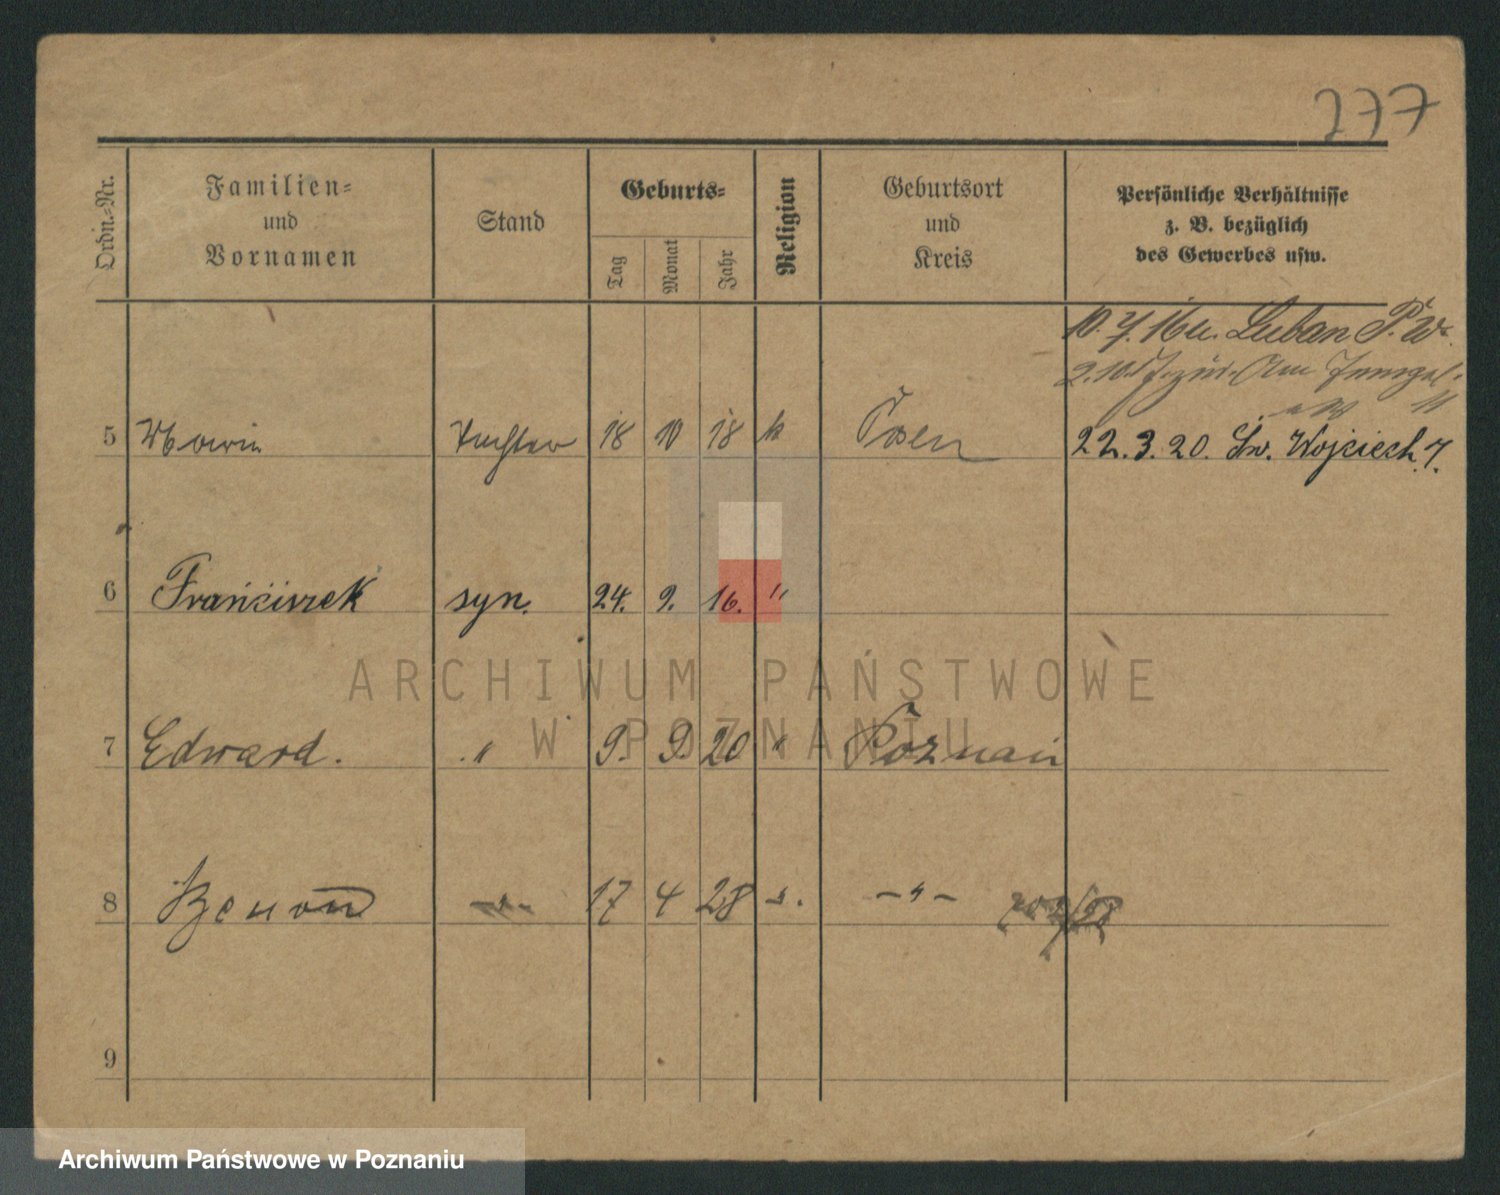 277
Ordn.-Nr.
Familien-
und
Vornamen
Stand
Geburts-
Tag
Monat
Jahr
Religion
Geburtsort
und
Kreis
Persönliche Verhältnisse
z. B. bezüglich
des Gewerbes usw.
10. 7. 16 Luban P. W.
5 Maria Tochter 18 10 18 k Posen 22.3.20. Św. Wojciech 7.
6 Franciszek syn. 24. 9. 16. "
7 Edward. " 9. 9. 20 " Poznań
8 Zenon -"- 17 4 28 -"- -"-
9
ARCHIWUM PAŃSTWOWE
W POZNANIU
Archiwum Państwowe w Poznaniu